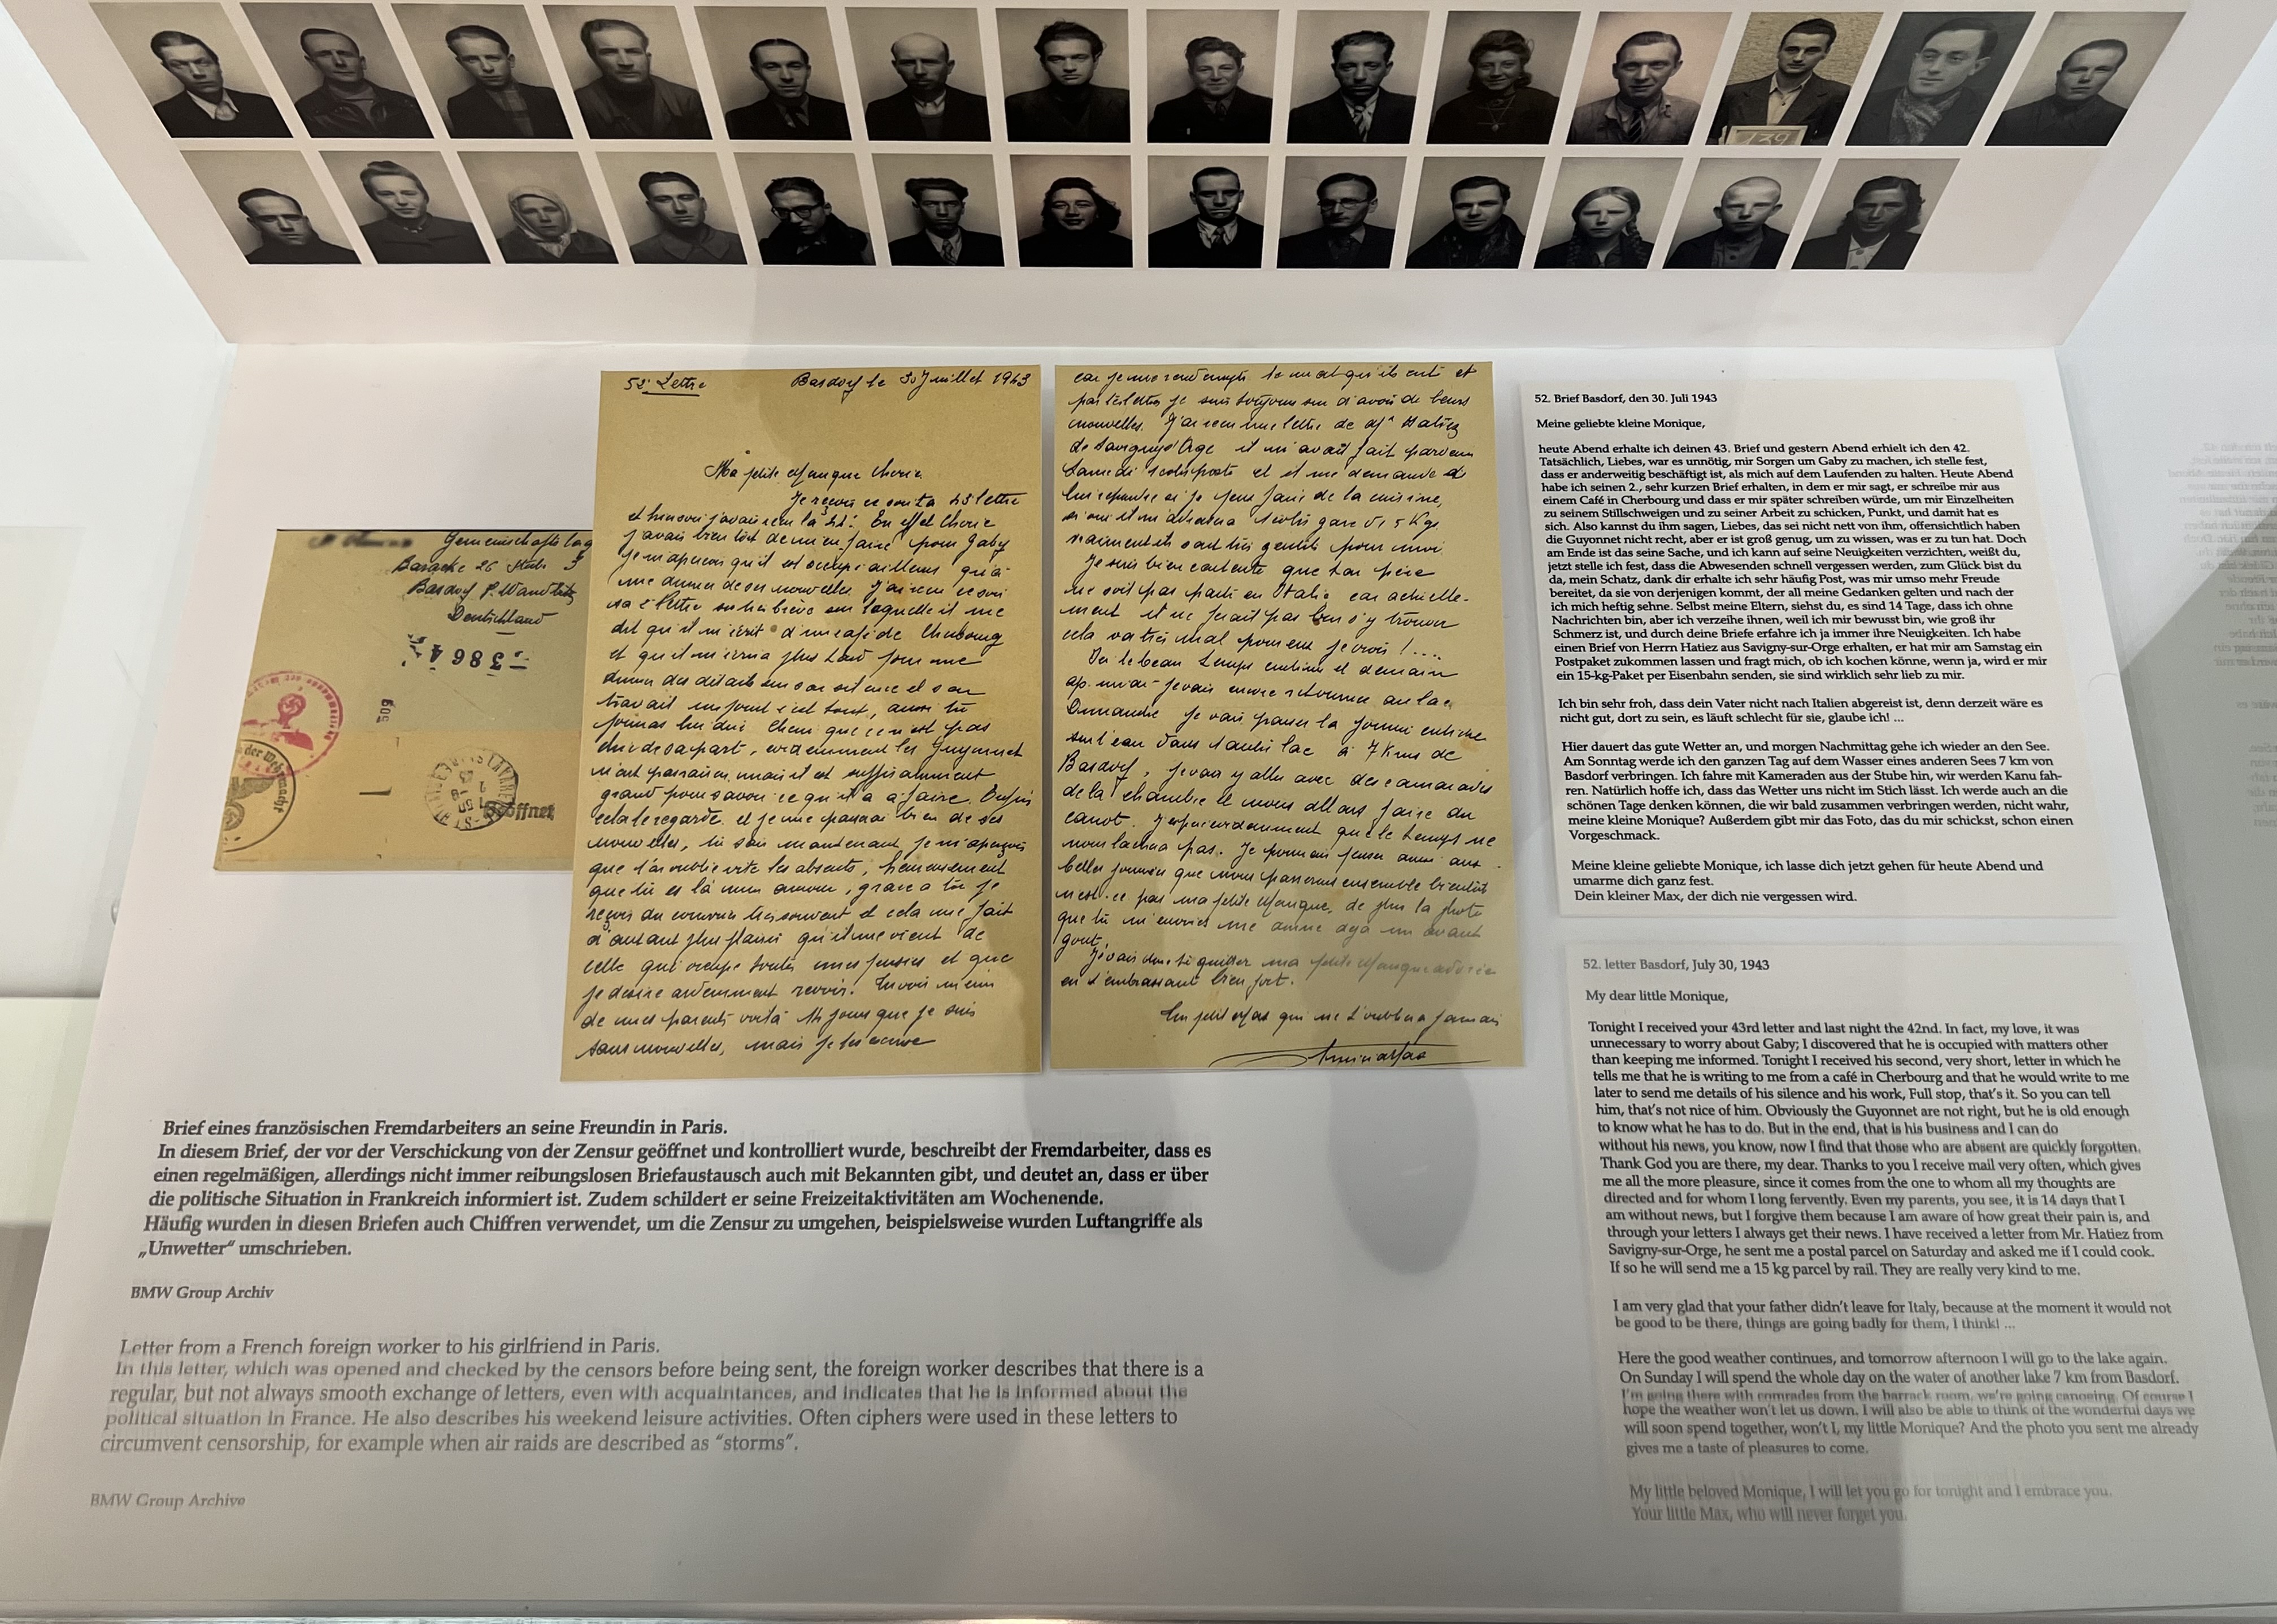 139
Gemeinschaftslag
Baracke 26 Stube 3
Basdorf P. Wandlitz
Deutschland
3864
509
der Wehrmacht
Geöffnet
52e Lettre Basdorf le 30 Juillet 1943
Ma petite Monique chérie
Je reçois ce soir ta 43 lettre
et hier soir j'avais reçu la 42. En effet chérie
j'avais bien tort de m'en faire pour Gaby
je m'aperçois qu'il est occupé ailleurs qu'à
me donner de ses nouvelles. J'ai reçu ce soir
sa 2e lettre très brève sur laquelle il me
dit qu'il m'écrit d'un café de Cherbourg
et qu'il m'écrira plus tard pour me
donner des détails sur son silence et son
travail un point c'est tout, aussi tu
pourras lui dire chérie que ce n'est pas
chic de sa part, évidemment les Guyonnet
n'ont pas raison, mais il est suffisamment
grand pour savoir ce qu'il a à faire. Enfin
cela le regarde et je me passerai bien de ses
nouvelles, tu sais maintenant je m'aperçois
que l'on oublie vite les absents, heureusement
que tu es là mon amour, grace à toi je
reçois du courrier très souvent et cela me fait
d'autant plus plaisir qu'il me vient de
celle qui occupe toutes mes pensées et que
je désire ardemment revoir. Tu vois même
de mes parents voilà 14 jours que je suis
sans nouvelles, mais je les excuse
car je me rend compte du mal qu'ils ont et
par tes lettres je suis toujours sur d'avoir de leurs
nouvelles. J'ai reçu une lettre de Mr Hatiez
de Savigny s/ Orge il m'avait fait parvenir
Samedi 1 colis poste et il me demande de
lui repondre si je peux faire de la cuisine,
si oui il m'adressera 1 colis gare de 15 Kgs,
vraiment ils sont très gentils pour moi.
Je suis bien contente que ton père
ne soit pas parti en Italie car actuelle-
ment il ne ferait pas bon s'y trouver
cela va très mal pour eux je crois !....
Ici le beau temps continue et demain
ap. midi je vais encore retourner au lac
Dimanche je vais passer la journée entière
sur l'eau dans 1 autre lac à 7 Kms de
Basdorf, je vais y aller avec des camarades
de la chambre et nous allons faire du
canot. J'espère évidemment que le temps ne
nous lachera pas. Je pourrais penser aussi aux
belles journées que nous passerons ensemble bientôt
n'est-ce pas ma petite Monique, de plus la photo
que tu m'envoies me donne déjà un avant
gout.
Je vais donc te quitter ma petite Monique adorée
en t'embrassant bien fort.
Ton petit Max qui ne t'oubliera jamais
52. Brief Basdorf, den 30. Juli 1943
Meine geliebte kleine Monique,
heute Abend erhalte ich deinen 43. Brief und gestern Abend erhielt ich den 42.
Tatsächlich, Liebes, war es unnötig, mir Sorgen um Gaby zu machen, ich stelle fest,
dass er anderweitig beschäftigt ist, als mich auf dem Laufenden zu halten. Heute Abend
habe ich seinen 2., sehr kurzen Brief erhalten, in dem er mir sagt, er schreibe mir aus
einem Café in Cherbourg und dass er mir später schreiben würde, um mir Einzelheiten
zu seinem Stillschweigen und zu seiner Arbeit zu schicken, Punkt, und damit hat es
sich. Also kannst du ihm sagen, Liebes, das sei nicht nett von ihm, offensichtlich haben
die Guyonnet nicht recht, aber er ist groß genug, um zu wissen, was er zu tun hat. Doch
am Ende ist das seine Sache, und ich kann auf seine Neuigkeiten verzichten, weißt du,
jetzt stelle ich fest, dass die Abwesenden schnell vergessen werden, zum Glück bist du
da, mein Schatz, dank dir erhalte ich sehr häufig Post, was mir umso mehr Freude
bereitet, da sie von derjenigen kommt, der all meine Gedanken gelten und nach der
ich mich heftig sehne. Selbst meine Eltern, siehst du, es sind 14 Tage, dass ich ohne
Nachrichten bin, aber ich verzeihe ihnen, weil ich mir bewusst bin, wie groß ihr
Schmerz ist, und durch deine Briefe erfahre ich ja immer ihre Neuigkeiten. Ich habe
einen Brief von Herrn Hatiez aus Savigny-sur-Orge erhalten, er hat mir am Samstag ein
Postpaket zukommen lassen und fragt mich, ob ich kochen könne, wenn ja, wird er mir
ein 15-kg-Paket per Eisenbahn senden, sie sind wirklich sehr lieb zu mir.
Ich bin sehr froh, dass dein Vater nicht nach Italien abgereist ist, denn derzeit wäre es
nicht gut, dort zu sein, es läuft schlecht für sie, glaube ich! ...
Hier dauert das gute Wetter an, und morgen Nachmittag gehe ich wieder an den See.
Am Sonntag werde ich den ganzen Tag auf dem Wasser eines anderen Sees 7 km von
Basdorf verbringen. Ich fahre mit Kameraden aus der Stube hin, wir werden Kanu fah-
ren. Natürlich hoffe ich, dass das Wetter uns nicht im Stich lässt. Ich werde auch an die
schönen Tage denken können, die wir bald zusammen verbringen werden, nicht wahr,
meine kleine Monique? Außerdem gibt mir das Foto, das du mir schickst, schon einen
Vorgeschmack.
Meine kleine geliebte Monique, ich lasse dich jetzt gehen für heute Abend und
umarme dich ganz fest.
Dein kleiner Max, der dich nie vergessen wird.
52. letter Basdorf, July 30, 1943
My dear little Monique,
Tonight I received your 43rd letter and last night the 42nd. In fact, my love, it was
unnecessary to worry about Gaby; I discovered that he is occupied with matters other
than keeping me informed. Tonight I received his second, very short, letter in which he
tells me that he is writing to me from a café in Cherbourg and that he would write to me
later to send me details of his silence and his work, Full stop, that's it. So you can tell
him, that's not nice of him. Obviously the Guyonnet are not right, but he is old enough
to know what he has to do. But in the end, that is his business and I can do
without his news, you know, now I find that those who are absent are quickly forgotten.
Thank God you are there, my dear. Thanks to you I receive mail very often, which gives
me all the more pleasure, since it comes from the one to whom all my thoughts are
directed and for whom I long fervently. Even my parents, you see, it is 14 days that I
am without news, but I forgive them because I am aware of how great their pain is, and
through your letters I always get their news. I have received a letter from Mr. Hatiez from
Savigny-sur-Orge, he sent me a postal parcel on Saturday and asked me if I could cook.
If so he will send me a 15 kg parcel by rail. They are really very kind to me.
I am very glad that your father didn't leave for Italy, because at the moment it would not
be good to be there, things are going badly for them, I think! ...
Here the good weather continues, and tomorrow afternoon I will go to the lake again.
On Sunday I will spend the whole day on the water of another lake 7 km from Basdorf.
I'm going there with comrades from the barrack room, we're going canoeing. Of course I
hope the weather won't let us down. I will also be able to think of the wonderful days we
will soon spend together, won't I, my little Monique? And the photo you sent me already
gives me a taste of pleasures to come.
My little beloved Monique, I will let you go for tonight and I embrace you.
Your little Max, who will never forget you.
Brief eines französischen Fremdarbeiters an seine Freundin in Paris.
In diesem Brief, der vor der Verschickung von der Zensur geöffnet und kontrolliert wurde, beschreibt der Fremdarbeiter, dass es
einen regelmäßigen, allerdings nicht immer reibungslosen Briefaustausch auch mit Bekannten gibt, und deutet an, dass er über
die politische Situation in Frankreich informiert ist. Zudem schildert er seine Freizeitaktivitäten am Wochenende.
Häufig wurden in diesen Briefen auch Chiffren verwendet, um die Zensur zu umgehen, beispielsweise wurden Luftangriffe als
„Unwetter“ umschrieben.
BMW Group Archiv
Letter from a French foreign worker to his girlfriend in Paris.
In this letter, which was opened and checked by the censors before being sent, the foreign worker describes that there is a
regular, but not always smooth exchange of letters, even with acquaintances, and indicates that he is informed about the
political situation in France. He also describes his weekend leisure activities. Often ciphers were used in these letters to
circumvent censorship, for example when air raids are described as “storms”.
BMW Group Archive